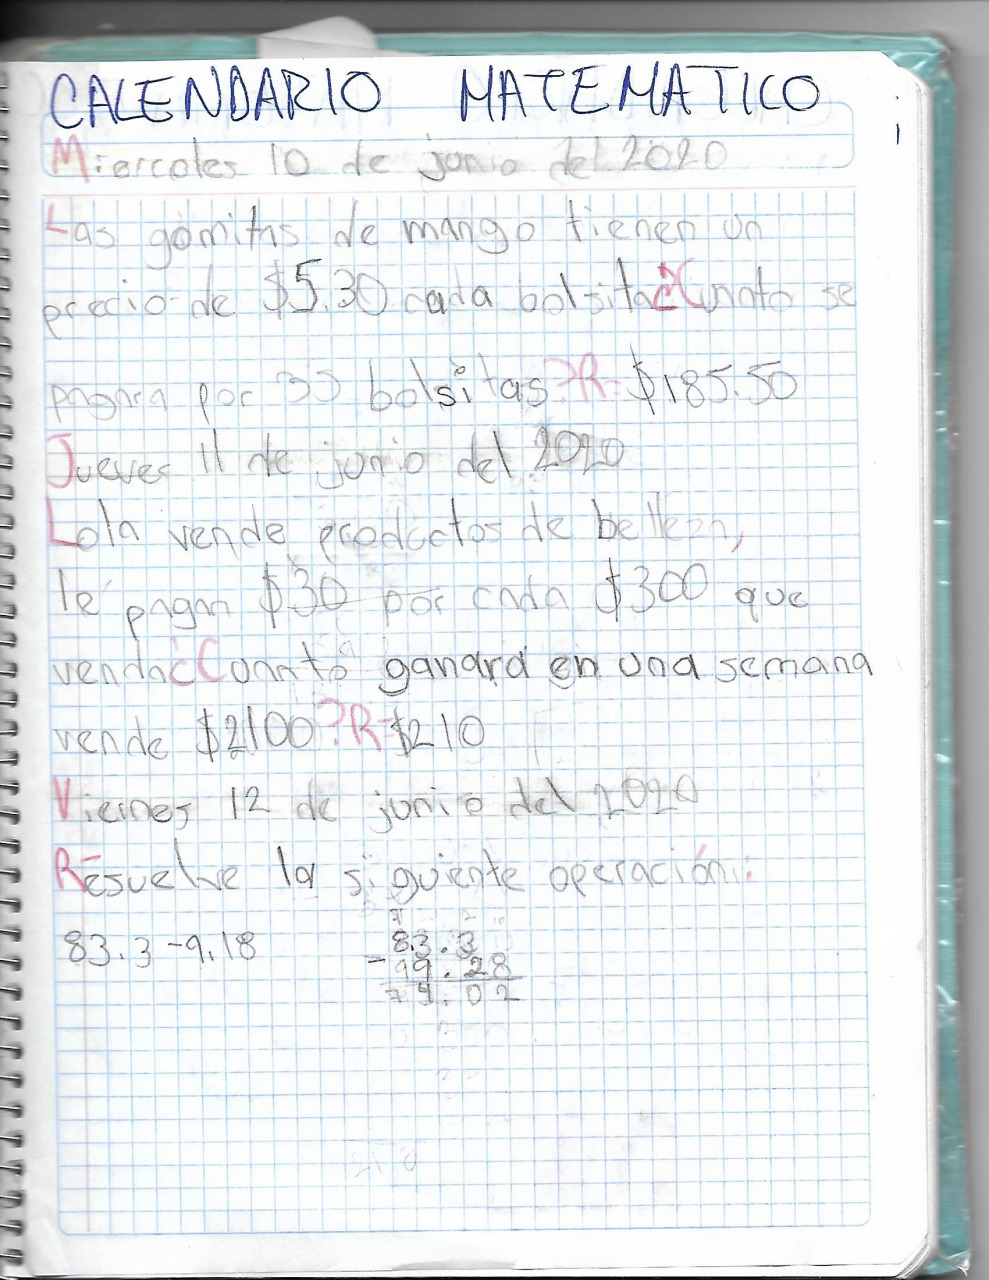 CALENDARIO MATEMATICO
Miercoles 10 de junio del 2020
Las gomitas de mango tienen un
precio de $5.30 cada bolsita¿Cuanto se
pagara por 35 bolsitas?R= $185.50
Jueves 11 de junio del 2020
Lola vende productos de belleza,
le pagan $30 por cada $300 que
venda¿Cuanto ganará en una semana
vende $2100?R=$210
Viernes 12 de junio del 2020
Resuelve la siguiente operación:
83.3-9.18
83.3
- 19.28
74.02